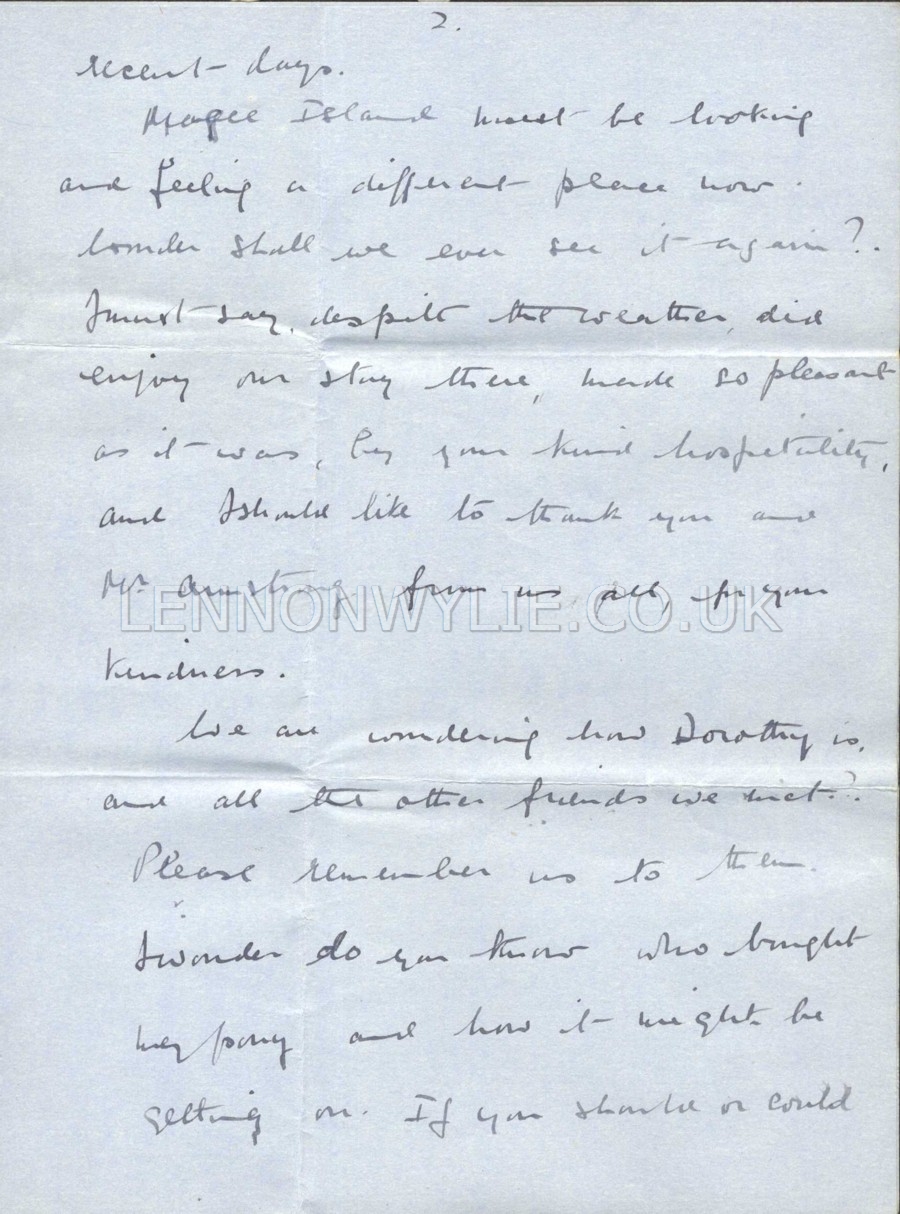 2.
recent days.
Magee Island must be looking
and feeling a different place now.
Wonder shall we ever see it again?.
I must say, despite the weather, did
enjoy our stay there, made so pleasant
as it was, by your kind hospitality,
and I should like to thank you and
Mr Armstrong from us all, for your
LENNONWYLIE.CO.UK
kindness.
We are wondering how Dorothy is,
and all the other friends we met?.
Please remember us to them.
I wonder do you know who bought
my pony and how it might be
getting on. If you should or could